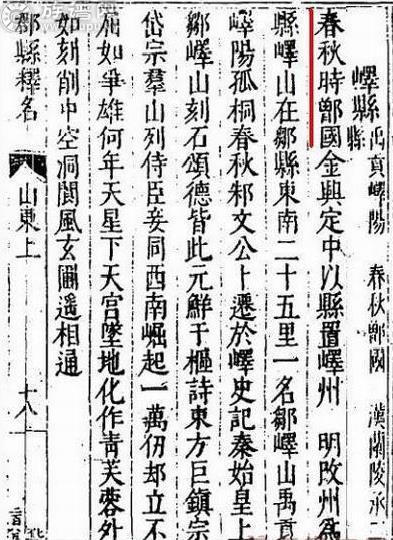 嶧縣 禹貢嶧陽 春秋鄫國 漢蘭陵承二
縣
春秋時鄫國金興定中以縣置嶧州 明改州為
縣嶧山在鄒縣東南二十五里一名鄒嶧山禹貢
嶧陽孤桐春秋邾文公卜遷於嶧史記秦始皇上
鄒嶧山刻石頌德皆此元鮮于樞詩東方巨鎮宗
岱宗羣山列侍臣妾同西南崛起一萬仞却立不
屈如爭雄何年天星下天宮墜地化作靑芙蓉外
如刻削中空洞閬風玄圃遥相通
郡縣釋名 山東上 十八